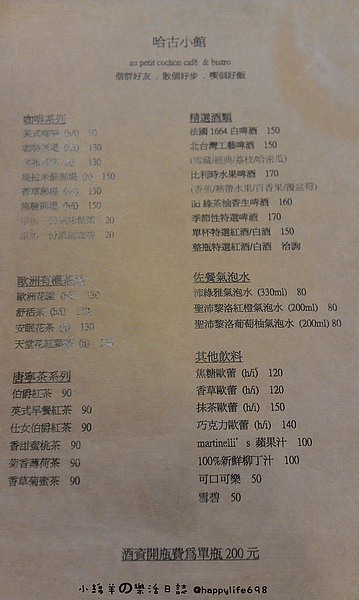 哈古小館
au petit cochon café & bistro
偕群好友．散個好步．喫個好飯
咖啡系列
美式咖啡 (h/i) 90
咖啡那堤 (h/i) 130
(h/i) 130
提拉米蘇那堤 (h/i) 150
香草那堤 (h/i) 150
焦糖那堤 (h/i) 150
20
20
歐洲有機茶
歐洲花園 130
舒活茶 (h) 130
安眠花茶 (h) 130
天堂花紅葉茶 (h)
唐寧茶系列
伯爵紅茶 90
英式早餐紅茶 90
仕女伯爵紅茶 90
香甜蜜桃茶 90
菊香薄荷茶 90
香草菊蜜茶 90
精選酒類
法國 1664 白啤酒 150
北台灣工藝啤酒 150
(雪藏/經典/荔枝/哈密瓜)
比利時水果啤酒 170
(香蕉/熱帶水果/百香果/覆盆莓)
iki 綠茶柚香生啤酒 160
季節性特選啤酒 170
單杯特選紅酒/白酒 150
整瓶特選紅酒/白酒 洽詢
佐餐氣泡水
沛綠雅氣泡水 (330ml) 80
聖沛黎洛紅橙氣泡水 (200ml) 80
聖沛黎洛葡萄柚氣泡水 (200ml) 80
其他飲料
焦糖歐蕾 (h/i) 120
香草歐蕾 (h/i) 120
抹茶歐蕾 (h/i) 150
巧克力歐蕾 (h/i) 140
martinelli's 蘋果汁 100
100%新鮮柳丁汁 100
可口可樂 50
雪碧 50
酒資開瓶費為單瓶 200 元
小綿羊の樂活日誌 @happylife698